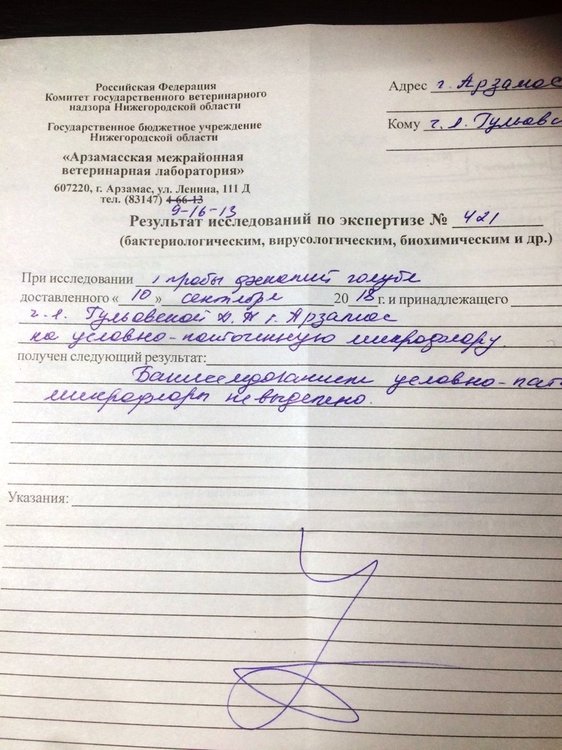 Российская Федерация
Комитет государственного ветеринарного
надзора Нижегородской области
Государственное бюджетное учреждение
Нижегородской области
«Арзамасская межрайонная
ветеринарная лаборатория»
607220, г. Арзамас, ул. Ленина, 111 Д
тел. (83147) 4-66-13
9-16-13
Адрес г. Арзамас
Кому ч.л. Гульовс
Результат исследований по экспертизе № 421
(бактериологическим, вирусологическим, биохимическим и др.)
При исследовании 1 пробы фекалий голубя
доставленного « 10 » сентября 2018 г. и принадлежащего
ч.л. Гульовской Д. Н г. Арзамас
на условно-патогенную микрофлору
получен следующий результат:
Бакисследованием условно-пат
микрофлоры не выделено.
Указания: